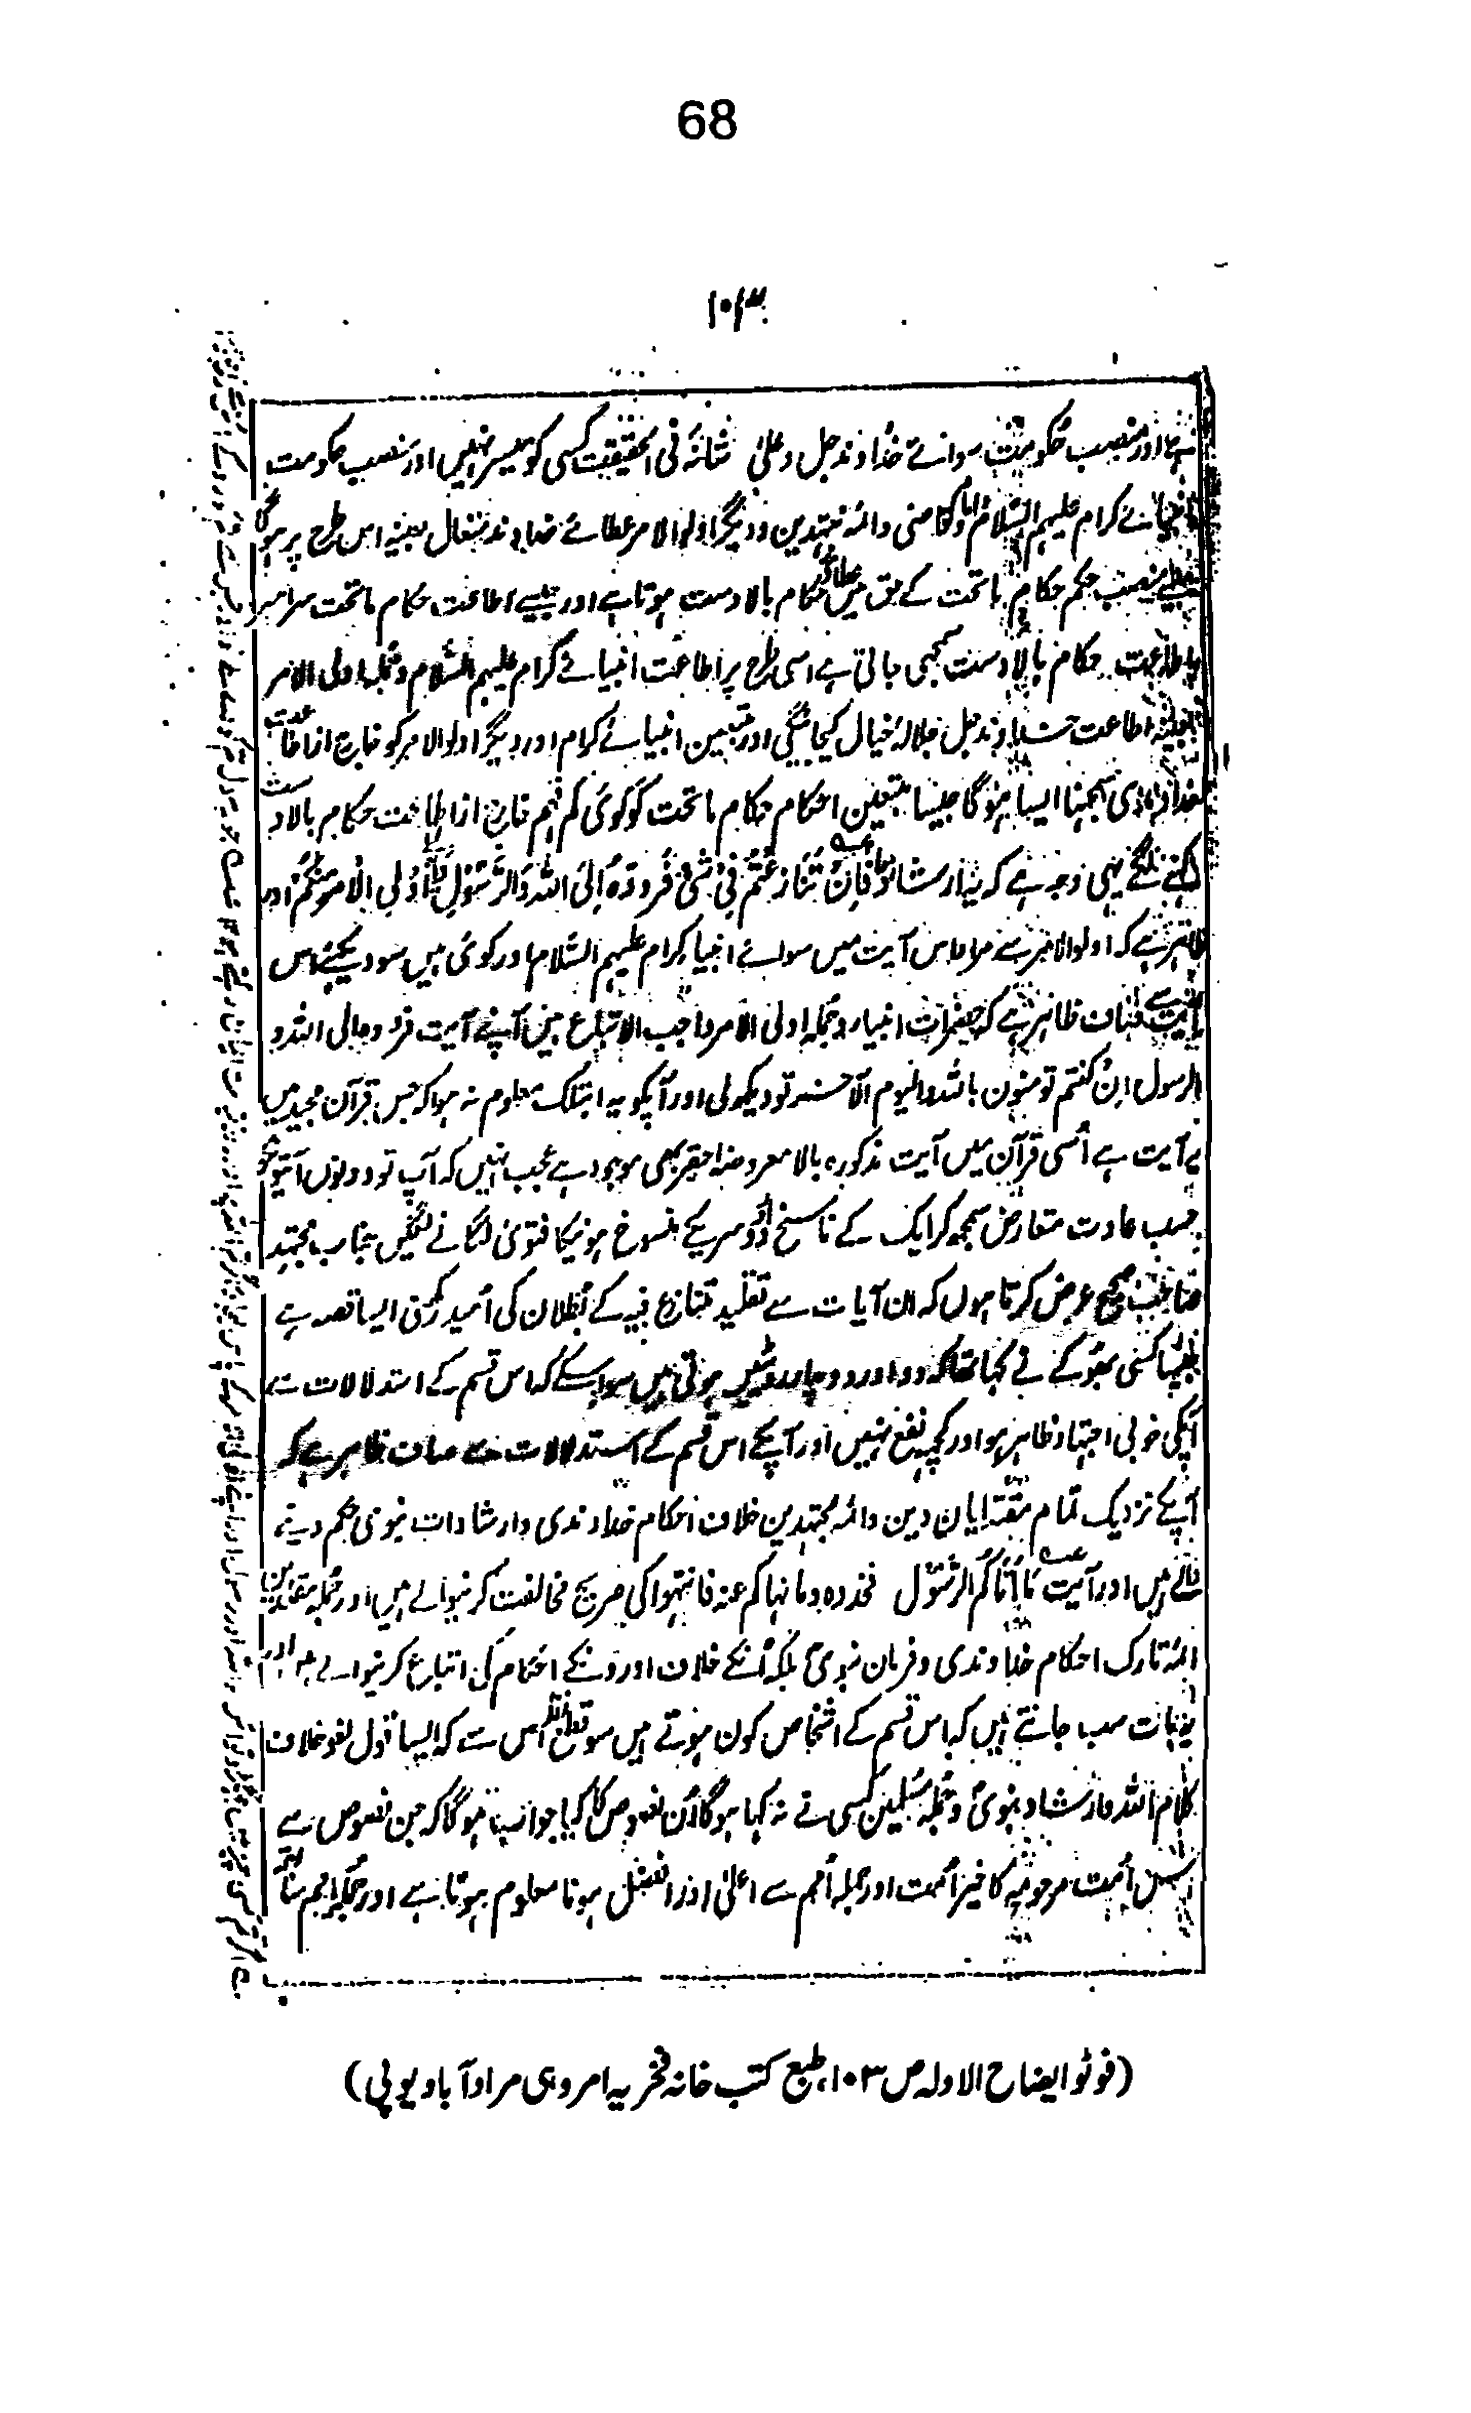 68
۱۰۳
ہے اور منصب حکومت سوائے خداوند جل وعلیٰ شانہٗ فی الحقیقت کسی کو میسر نہیں اور منصب حکومت
انبیائے کرام علیہم السّلام و امام و قاضی وائمہ مجتہدین ودیگر اولوالامر عطائے خداوند متعال بعینہٖ اس طرح پر ہوگا
جیسے منصب حکم حکام ماتحت کے حق میں عطائے حکام بالادست ہوتا ہے اور جیسے اطاعت حکام ماتحت سراسر
اطاعت حکام بالادست سمجھی جاتی ہے اسی طرح پر اطاعت انبیائے کرام علیہم السّلام وجملہ اولی الامر
بعینہٖ اطاعت خداوند جل جلالہٗ خیال کیجائیگی اور متبعین انبیائے کرام اور دیگر اولوالامر کو خارج از اطاعت
خداوندی سمجھنا ایسا ہوگا جیسا متبعین احکام حکام ماتحت کو کوئی کم فہم خارج از اطاعت حکام بالادست
کہنے لگے یہی وجہ ہے کہ یہ ارشاد ہوا فَاِنْ تَنَازَعْتُمْ فِیْ شَیْءٍ فَرُدُّوْہُ اِلَی اللّٰہِ وَالرَّسُوْلِ وَاِلٰی اُولِی الْاَمْرِ مِنْکُمْ اور
ظاہر ہے کہ اولوالامر سے مراد اس آیت میں سوائے انبیاء کرام علیہم السّلام اور کوئی ہیں سو دیکھئے اس
آیت سے صاف ظاہر ہے کہ حضرات انبیاء وجملہ اولی الامر واجب الاتباع ہیں آپنے آیت فردوہ الی اللہ و
الرسول ان کنتم تومنون باللہ والیوم الآخر تو دیکھ لی اور آپکو یہ ابتک معلوم نہ ہوا کہ جس قرآن مجید میں
یہ آیت ہے اُسی قرآن میں آیت مذکورہ بالا معروضہ احقر بھی موجود ہے عجب نہیں کہ آپ تو دونوں آیتونکو
حسب عادت متعارض سمجھ کر ایک کے ناسخ اور دوسریکے منسوخ ہونیکا فتویٰ لگانے لگیں جناب مجتہد
صاحب صحیح عرض کرتا ہوں کہ ان آیات سے تقلید متنازع فیہ کے بُطلان کی اُمید رکھنی ایسا قصہ ہے
جیسا کسی بھوکے نے کہا تھا کہ دو اور دو چار روٹیں ہوتی ہیں سوائے اسکے کہ اس قسم کے استدلالات سے
آپکی خوبی اجتہاد ظاہر ہو اور کچھ نفع نہیں اور آپکے اس قسم کے استدلالات سے صاف ظاہر ہے کہ
آپکے نزدیک تمام مقتدایان دین وائمہ مجتہدین خلاف احکام خداوندی وارشادات نبوی حکم دینے
والے ہیں اور آیت مَا اٰتَاکُمُ الرَّسُوْل فخذوہ وما نہاکم عنہ فانتہوا کی صریح مخالفت کرنیوالے ہیں اور جملہ مقلدین
ائمہ تارک احکام خداوندی وفرمان نبویؐ بلکہ اُنکے خلاف اورونکے احکام کی اتباع کرنیوالے ہیں اور
یہ بات سب جانتے ہیں کہ اس قسم کے اشخاص کون ہوتے ہیں سو قطع نظر اس سے کہ ایسا قول لغو خلاف
کلام اللہ وارشاد نبویؐ وجملہ مسلمین کسی نے نہ کہا ہوگا اُن نصوص کا کیا جواب ہوگا کہ جن نصوص سے
اس اُمت مرحومہ کا خیر اُمت اور جملہ اُمم سے اعلیٰ اور افضل ہونا معلوم ہوتا ہے اور جبکہ بزعم جناب
(فوٹو ایضاح الاولہ ص ۱۰۳، طبع کتب خانہ فخریہ امروہی مراد آباد یوپی)